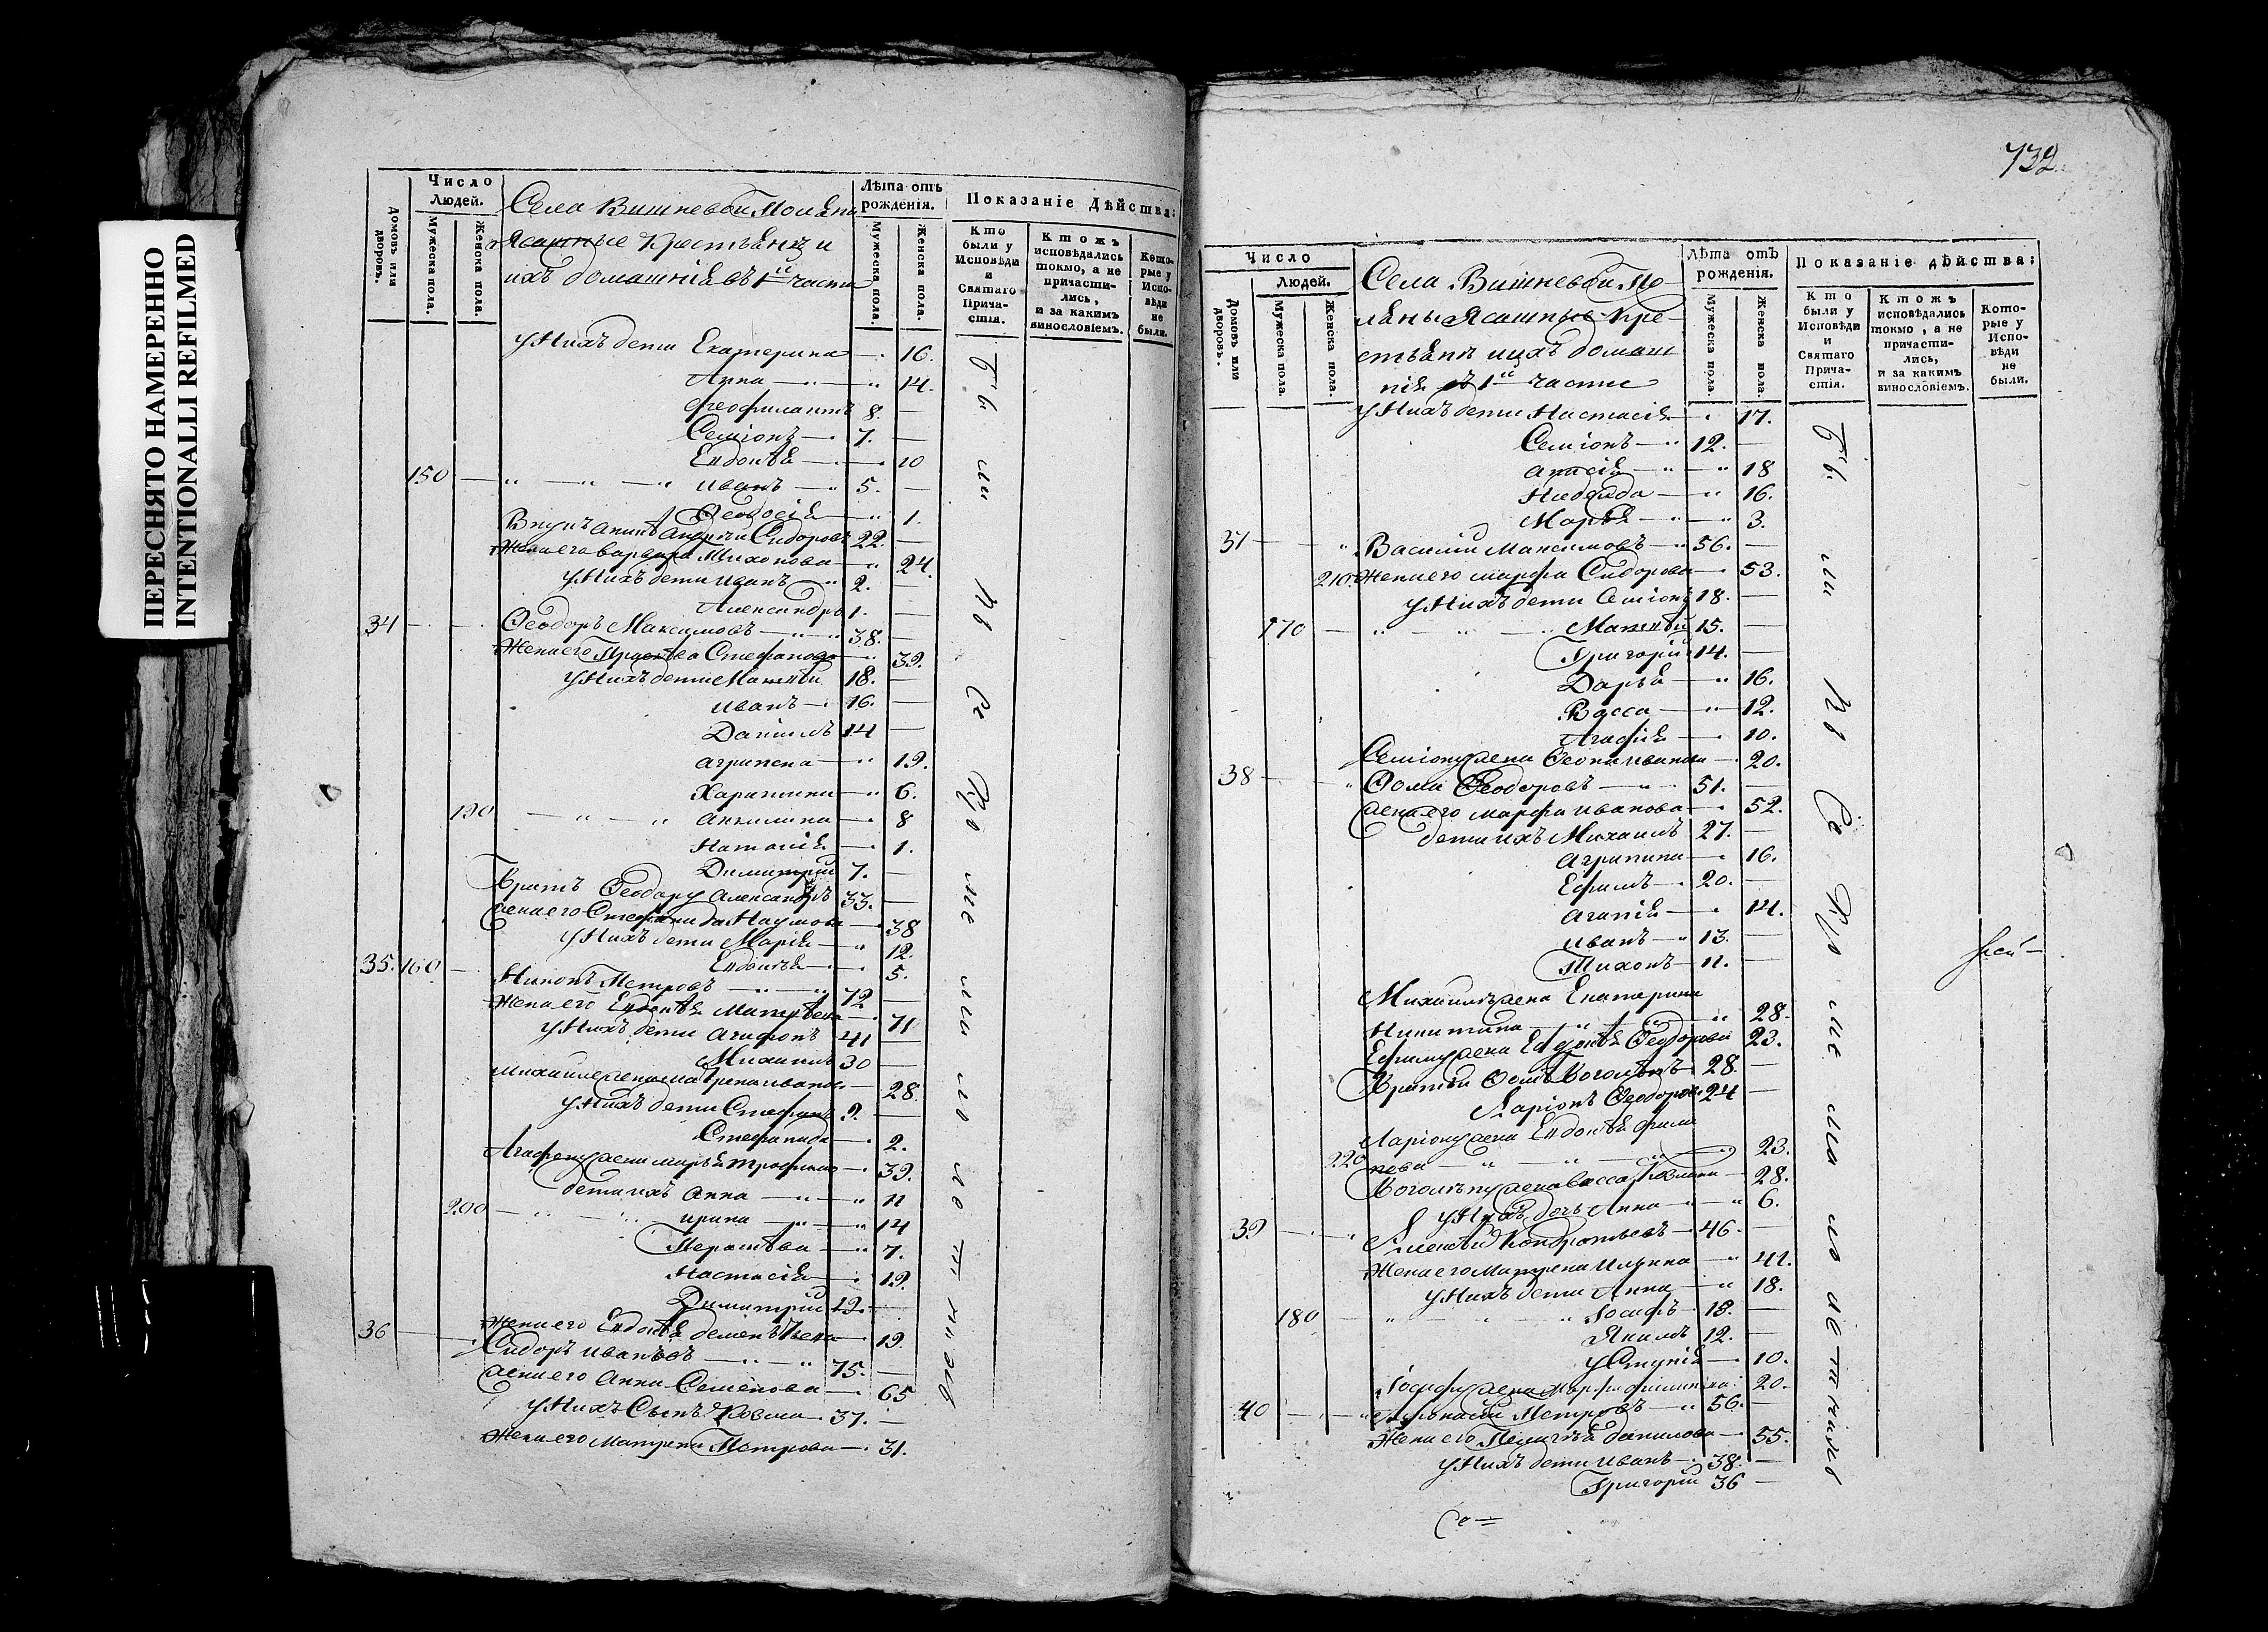 ПЕРЕСНЯТО НАМЕРЕННО
INTENTIONALLI REFILMED
Число
Людей.
Домовъ или дворовъ.
Мужеска пола.
Женска пола.
Села Вишневой Поляны
Ясашные Крестьянѣ и
ихъ домашнія въ 1й части
Лѣта отъ рожденія.
Мужеска пола.
Женска пола.
Показаніе Дѣйства:
Кто были у Исповѣди и Святаго Причастія.
Ктожъ исповѣдались токмо, а не причастились, и за какимъ винословіемъ.
Которые у Исповѣди не были.
у Нихъ дети Екатерина 16.
Анна 14.
Феофилактъ 8.
Семіонъ 7.
Евдокѣя 10
150 Иванъ 5.
Ѳеодосія 1.
Сидоровъ 22.
Жена его Варвара Тихонова 24.
у Нихъ дети Иванъ 2.
Александръ 1.
34 Ѳеодоръ Максимовъ 38.
Жена его Стефанова 39.
у Нихъ дети Матвѣй 18.
Иванъ 16.
Даниилъ 14
Агрипена 19.
Харитина 6.
190 Акилина 8
Наталія 1.
Димитрий 7.
Братъ Ѳеодору Александръ 33.
жена его Стефанида Наумова 38
у Нихъ дети Марія 12.
Евдокѣя 5.
35. 160 Никонъ Петровъ 72
Жена его Евдокѣя Матвѣева 71
у Нихъ дети Агафонъ 41
Михаилъ 30
Михаиле жена Матрена Иванова 28.
у Нихъ дети Стефанъ 9.
Стефанида 2.
Агафону жена Марья Трофимова 39.
дети ихъ Анна 11
200 Ирина 14
Перасковѣа 7.
Настасія 19.
Димитрий 19.
Жена его Евдокѣя Дементьева 19.
36 Сидоръ Ивановъ 75.
жена его Анна Семенова 65
у Нихъ Сынъ Козма 37.
Жена его Матрена Петрова 31.
732.
Число
Людей.
Домовъ или дворовъ.
Мужеска пола.
Женска пола.
Села Вишневой По-
ляны Ясашные Кре-
стьянѣ ихъ домаш
нія въ 1й части
Лѣта отъ рожденія.
Мужеска пола.
Женска пола.
Показаніе дѣйства:
Кто были у Исповѣди и Святаго Причастія.
Ктожъ исповѣдались токмо, а не причастились, и за какимъ винословіемъ.
Которые у Исповѣди не были.
у Нихъ дети Настасія 17.
Семіонъ 12.
18
16.
Марья 3.
37 Василій Максимовъ 56.
210. Жена его Марфа Сидорова 53.
у Нихъ дети Семіонъ 18.
170 Матвѣй 15.
Григорій 14.
Дарья 16.
Васса 12.
Агафія 10.
Семіону жена Иванова 20.
38 Ѳома Ѳеодоровъ 51.
жена его Марфа Иванова 52.
дети ихъ Михаилъ 27.
Агрипина 16.
Ефимъ 20.
Агапія 14.
Иванъ 13.
Тихонъ 11.
Михаилъ жена Екатерина
Никитина 28.
Ефиму жена Евдокѣя Ѳеодорова 23.
Братьи Ѳомѣ Боголѣпъ 28.
Ларіонъ Ѳеодоровъ 24
Ларіону жена Евдокѣя Фили
220 пова 23.
Боголѣпу жена Васса Козмина 28.
у Нихъ дочь Анна 6.
39 Алексѣй Кондратьевъ 46.
Жена его Матрена Ильина 41.
у Нихъ дети Анна 18.
180 Іосифъ 18.
Якимъ 12.
Устинія 10.
Іосифу жена Марфа Филипова 20.
40 Афонасій Петровъ 56.
Жена его Пелагѣя Данилова 55.
у Нихъ дети Иванъ 38.
Григорій 36